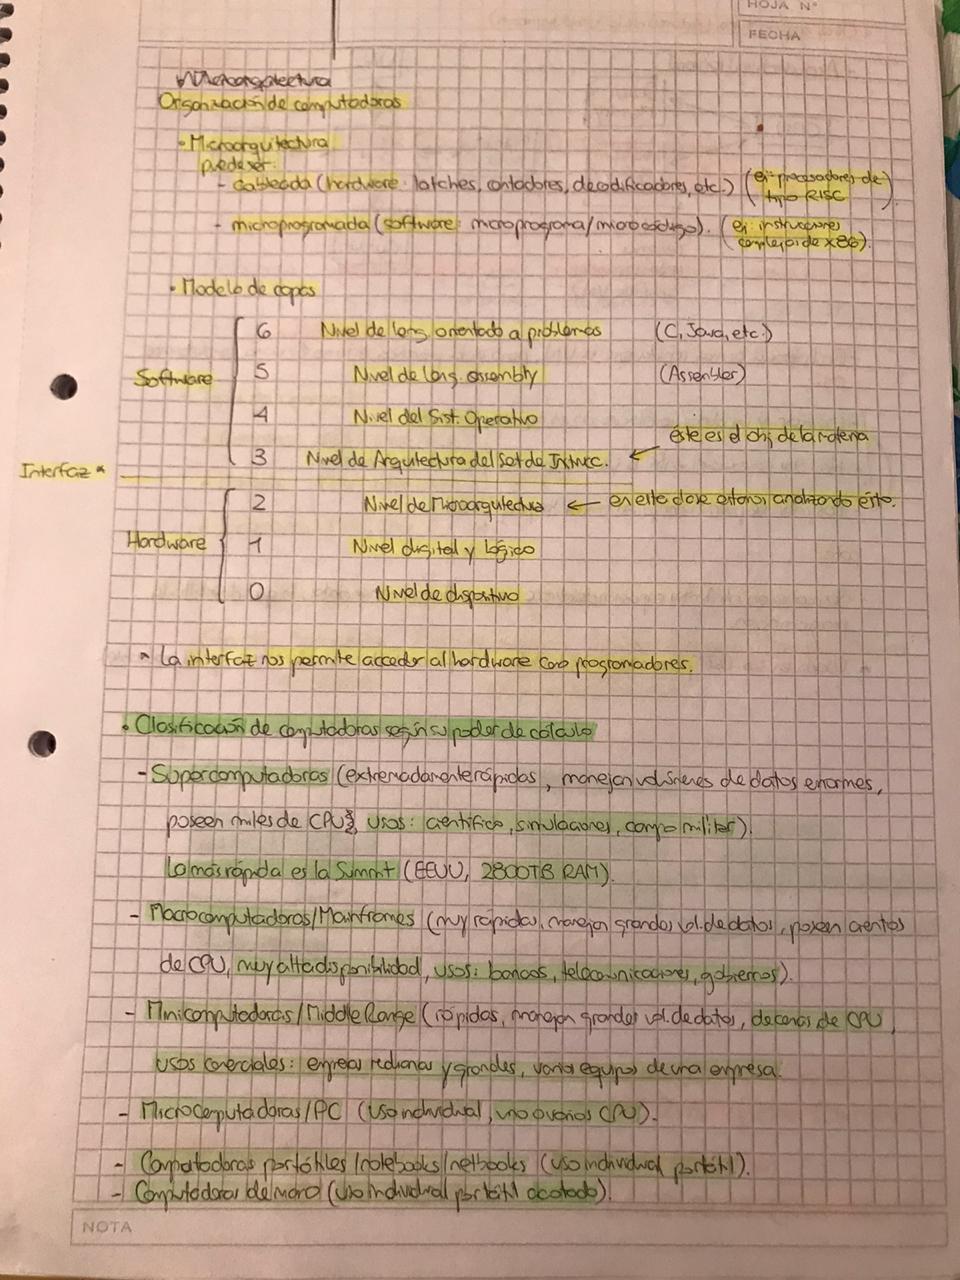 HOJA N°
FECHA
Microarquitectura
Organización de computadoras
• Microarquitectura
puede ser:
- cableada (hardware: latches, contadores, decodificadores, etc.) (ej: procesadores de tipo RISC).
- microprogramada (software: microprograma/microcódigo). (ej: instrucciones complejas de x86).
• Modelo de capas
6 Nivel de leng. orientado a problemas (C, Java, etc.)
Software 5 Nivel de leng. assembly (Assembler)
4 Nivel del Sist. Operativo
éste es el obj de la materia
3 Nivel de Arquitectura del Set de Instrucc. ←
Interfaz *
2 Nivel de Microarquitectura ← en esta clase estamos analizando ésto.
Hardware 1 Nivel digital y lógico
0 Nivel de dispositivo
* La interfaz nos permite acceder al hardware como programadores.
• Clasificación de computadoras según su poder de cálculo
- Supercomputadoras (extremadamente rápidas, manejan volúmenes de datos enormes,
poseen miles de CPUs, usos: científico, simulaciones, campo militar).
La más rápida es la Summit (EEUU, 2800TB RAM).
- Macrocomputadoras/Mainframes (muy rápidas, manejan grandes vol. de datos, poseen cientos
de CPU, muy alta disponibilidad, usos: bancos, telecomunicaciones, gobiernos).
- Minicomputadoras/Middle Range (rápidas, manejan grandes vol. de datos, decenas de CPU,
usos comerciales: empresas medianas y grandes, varios equipos de una empresa.
- Microcomputadoras/PC (uso individual, uno o varios CPU).
- Computadoras portátiles/notebooks/netbooks (uso individual portátil).
- Computadoras de mano (uso individual portátil acotado).
NOTA